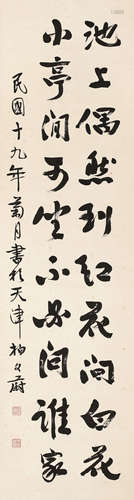 池上偶然到红花间白花
小亭闲可坐不必问谁家
民國十九年菊月書於天津 柏文蔚